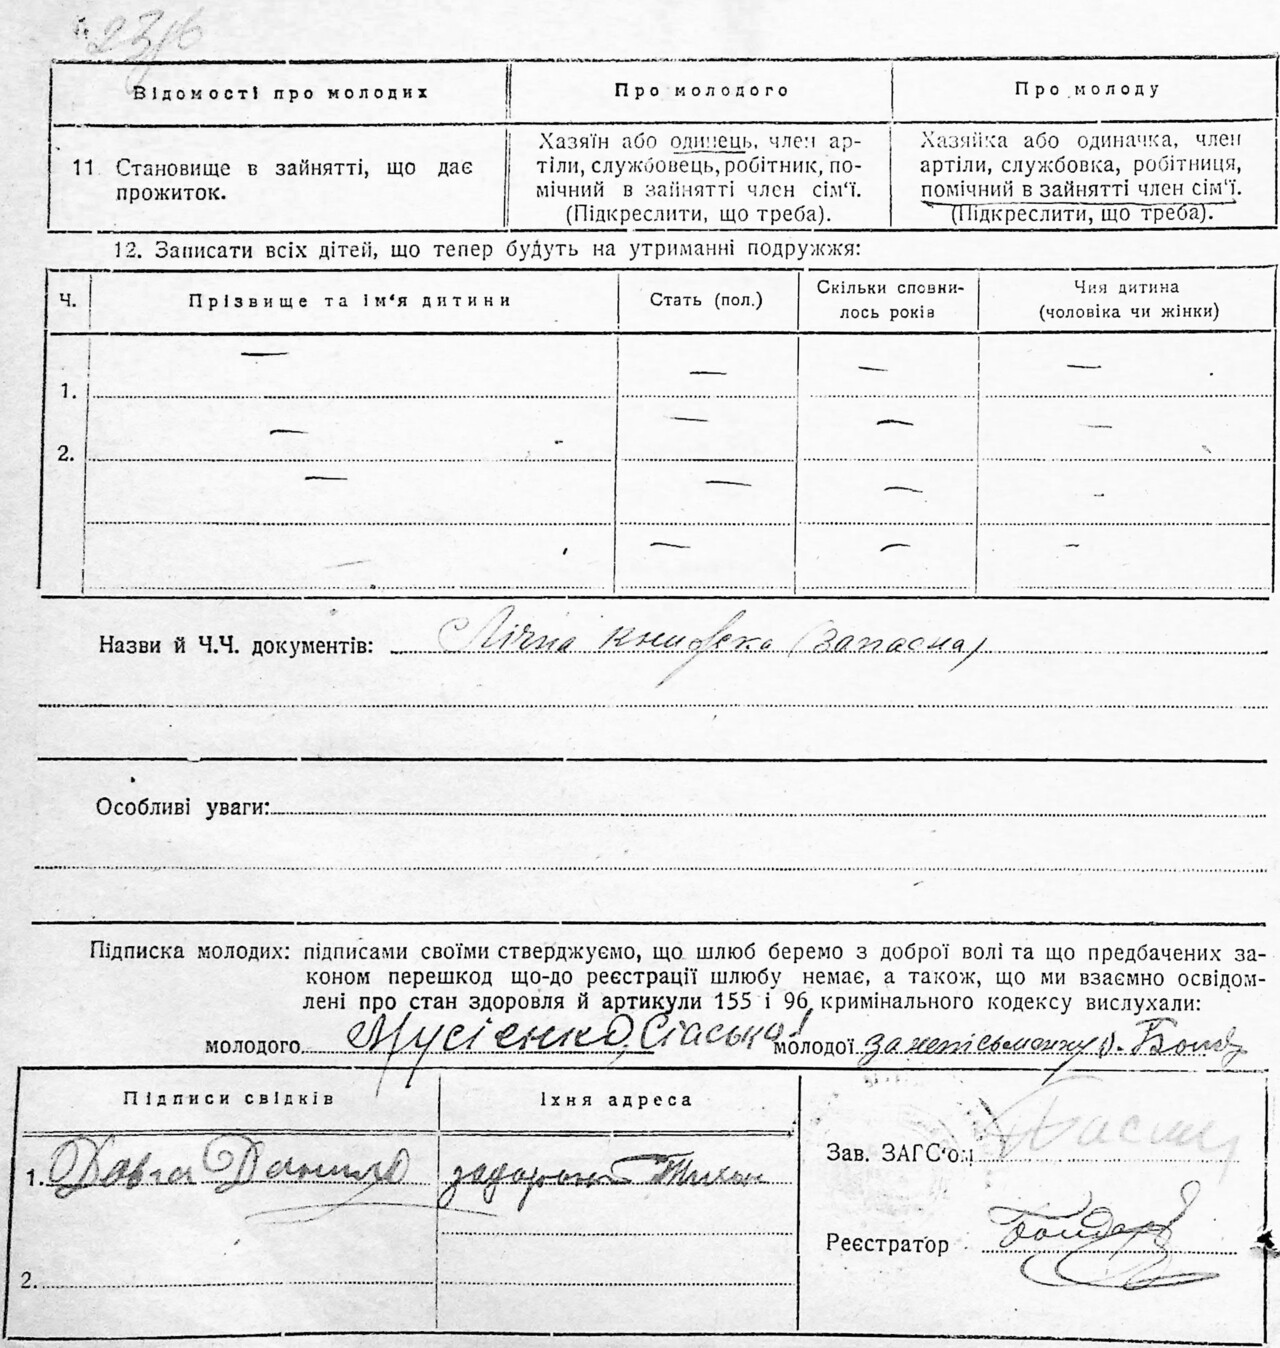 Відомості про молодих
Про молодого
Про молоду
11 Становище в зайнятті, що дає
прожиток.
Хазяїн або одинець, член ар-
тіли, службовець, робітник, по-
мічний в зайнятті член сім'ї.
(Підкреслити, що треба).
Хазяйка або одиначка, член
артіли, службовка, робітниця,
помічний в зайнятті член сім'ї.
(Підкреслити, що треба).
12. Записати всіх дітей, що тепер будуть на утриманні подружжя:
Ч.
Прізвище та ім'я дитини
Стать (пол.)
Скільки сповни-
лось років
Чия дитина
(чоловіка чи жінки)
1.
2.
Назви й Ч.Ч. документів: Лічна книжска (запасна)
Особливі уваги:
Підписка молодих: підписами своїми стверджуємо, що шлюб беремо з доброї волі та що предбачених за-
коном перешкод що-до реєстрації шлюбу немає, а також, що ми взаємно освідом-
лені про стан здоровля й артикули 155 і 96 кримінального кодексу вислухали:
молодого Мусієнко молодої за неписьменну
Підписи свідків
Їхня адреса
1. Данило
2.
Зав. ЗАГС'ом
Реєстратор